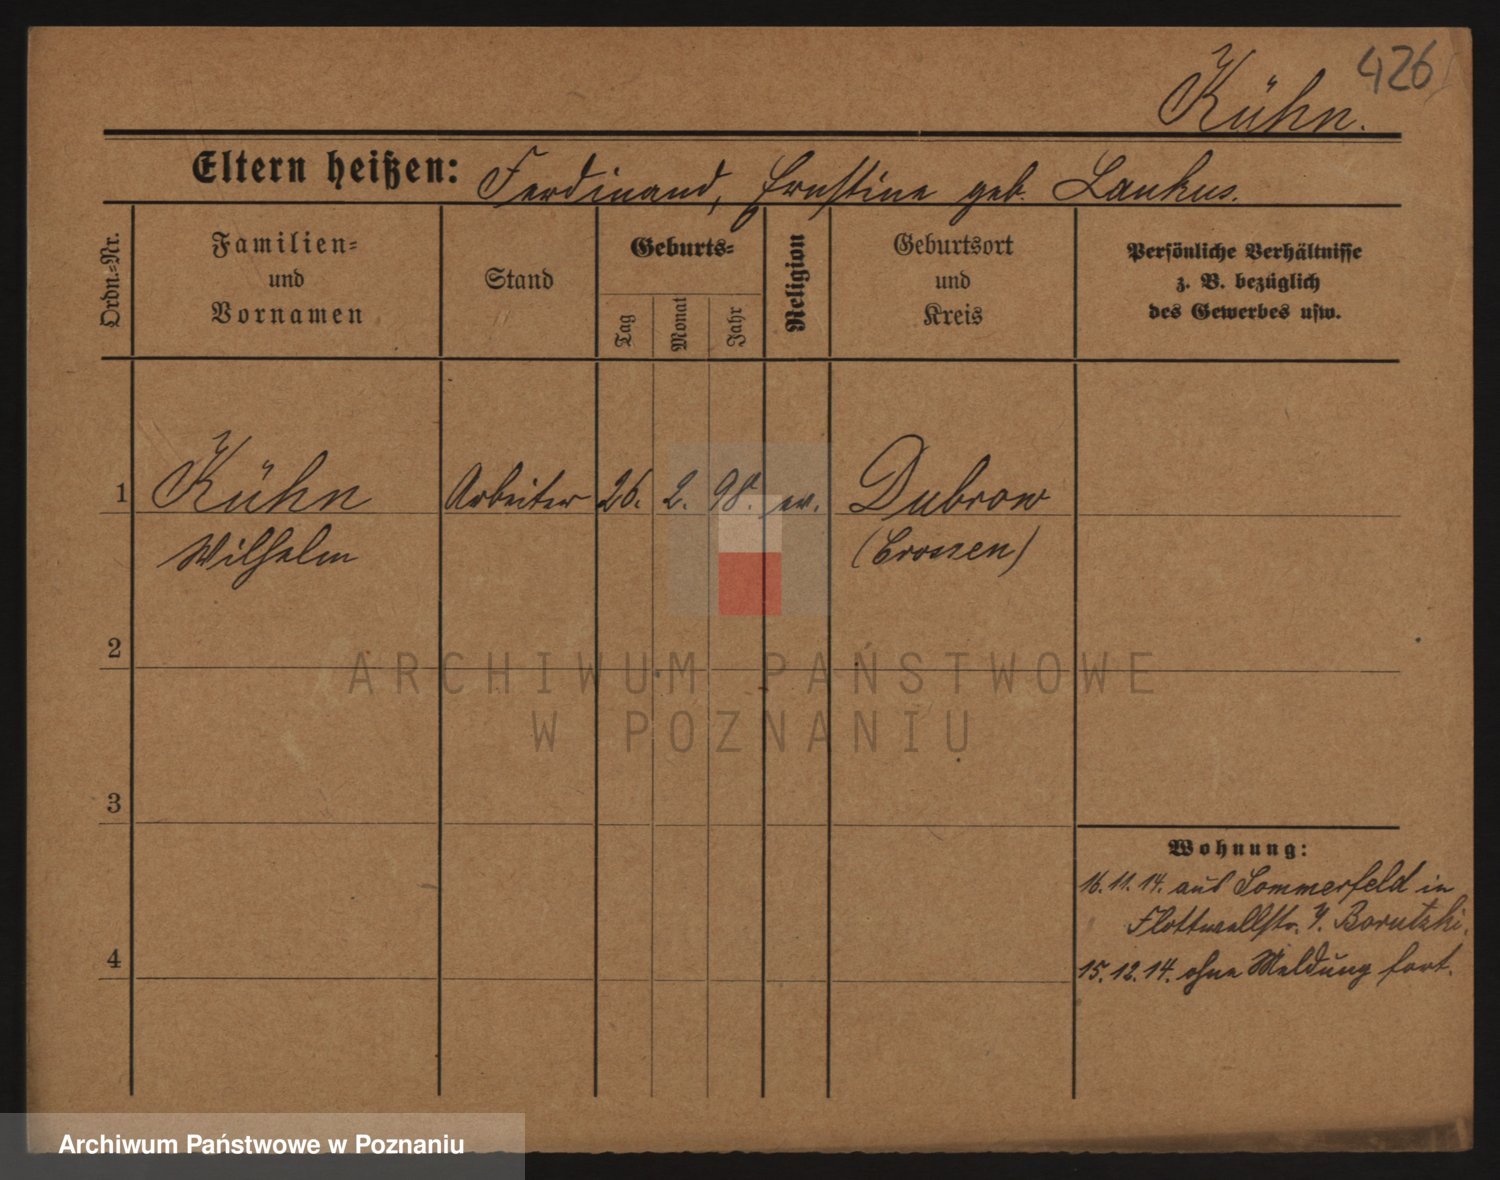 426
Kühn.
Eltern heißen: Ferdinand, Ernstine geb. Laukus.
Ordn.=Nr.
Familien=
und
Vornamen
Stand
Geburts=
Tag
Monat
Jahr
Religion
Geburtsort
und
Kreis
Persönliche Verhältnisse
z. B. bezüglich
des Gewerbes usw.
1 Kühn Arbeiter 26. 2. 98. ev. Dubrow
Wilhelm (Crossen)
2
3
4
Wohnung:
16.11.14. aus Sommerfeld in
Flottwellstr. 7. Borutzki.
15.12.14. ohne Meldung fort.
ARCHIWUM PAŃSTWOWE
W POZNANIU
Archiwum Państwowe w Poznaniu